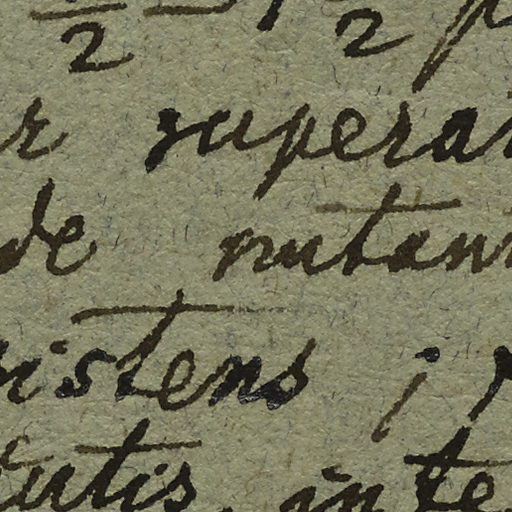 2 2
supera
de nutan
istens ;
utis inte